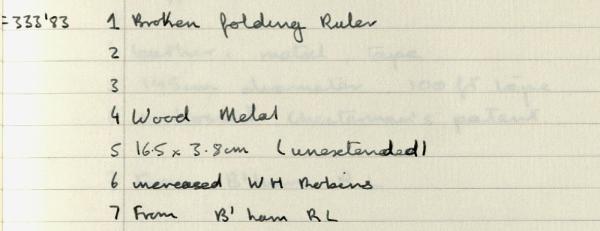 =333'83 1 Broken folding Ruler
2
3
4 Wood Metal
5 16.5 x 3.8cm (unextended)
6 W H Robins
7 From B'ham RL